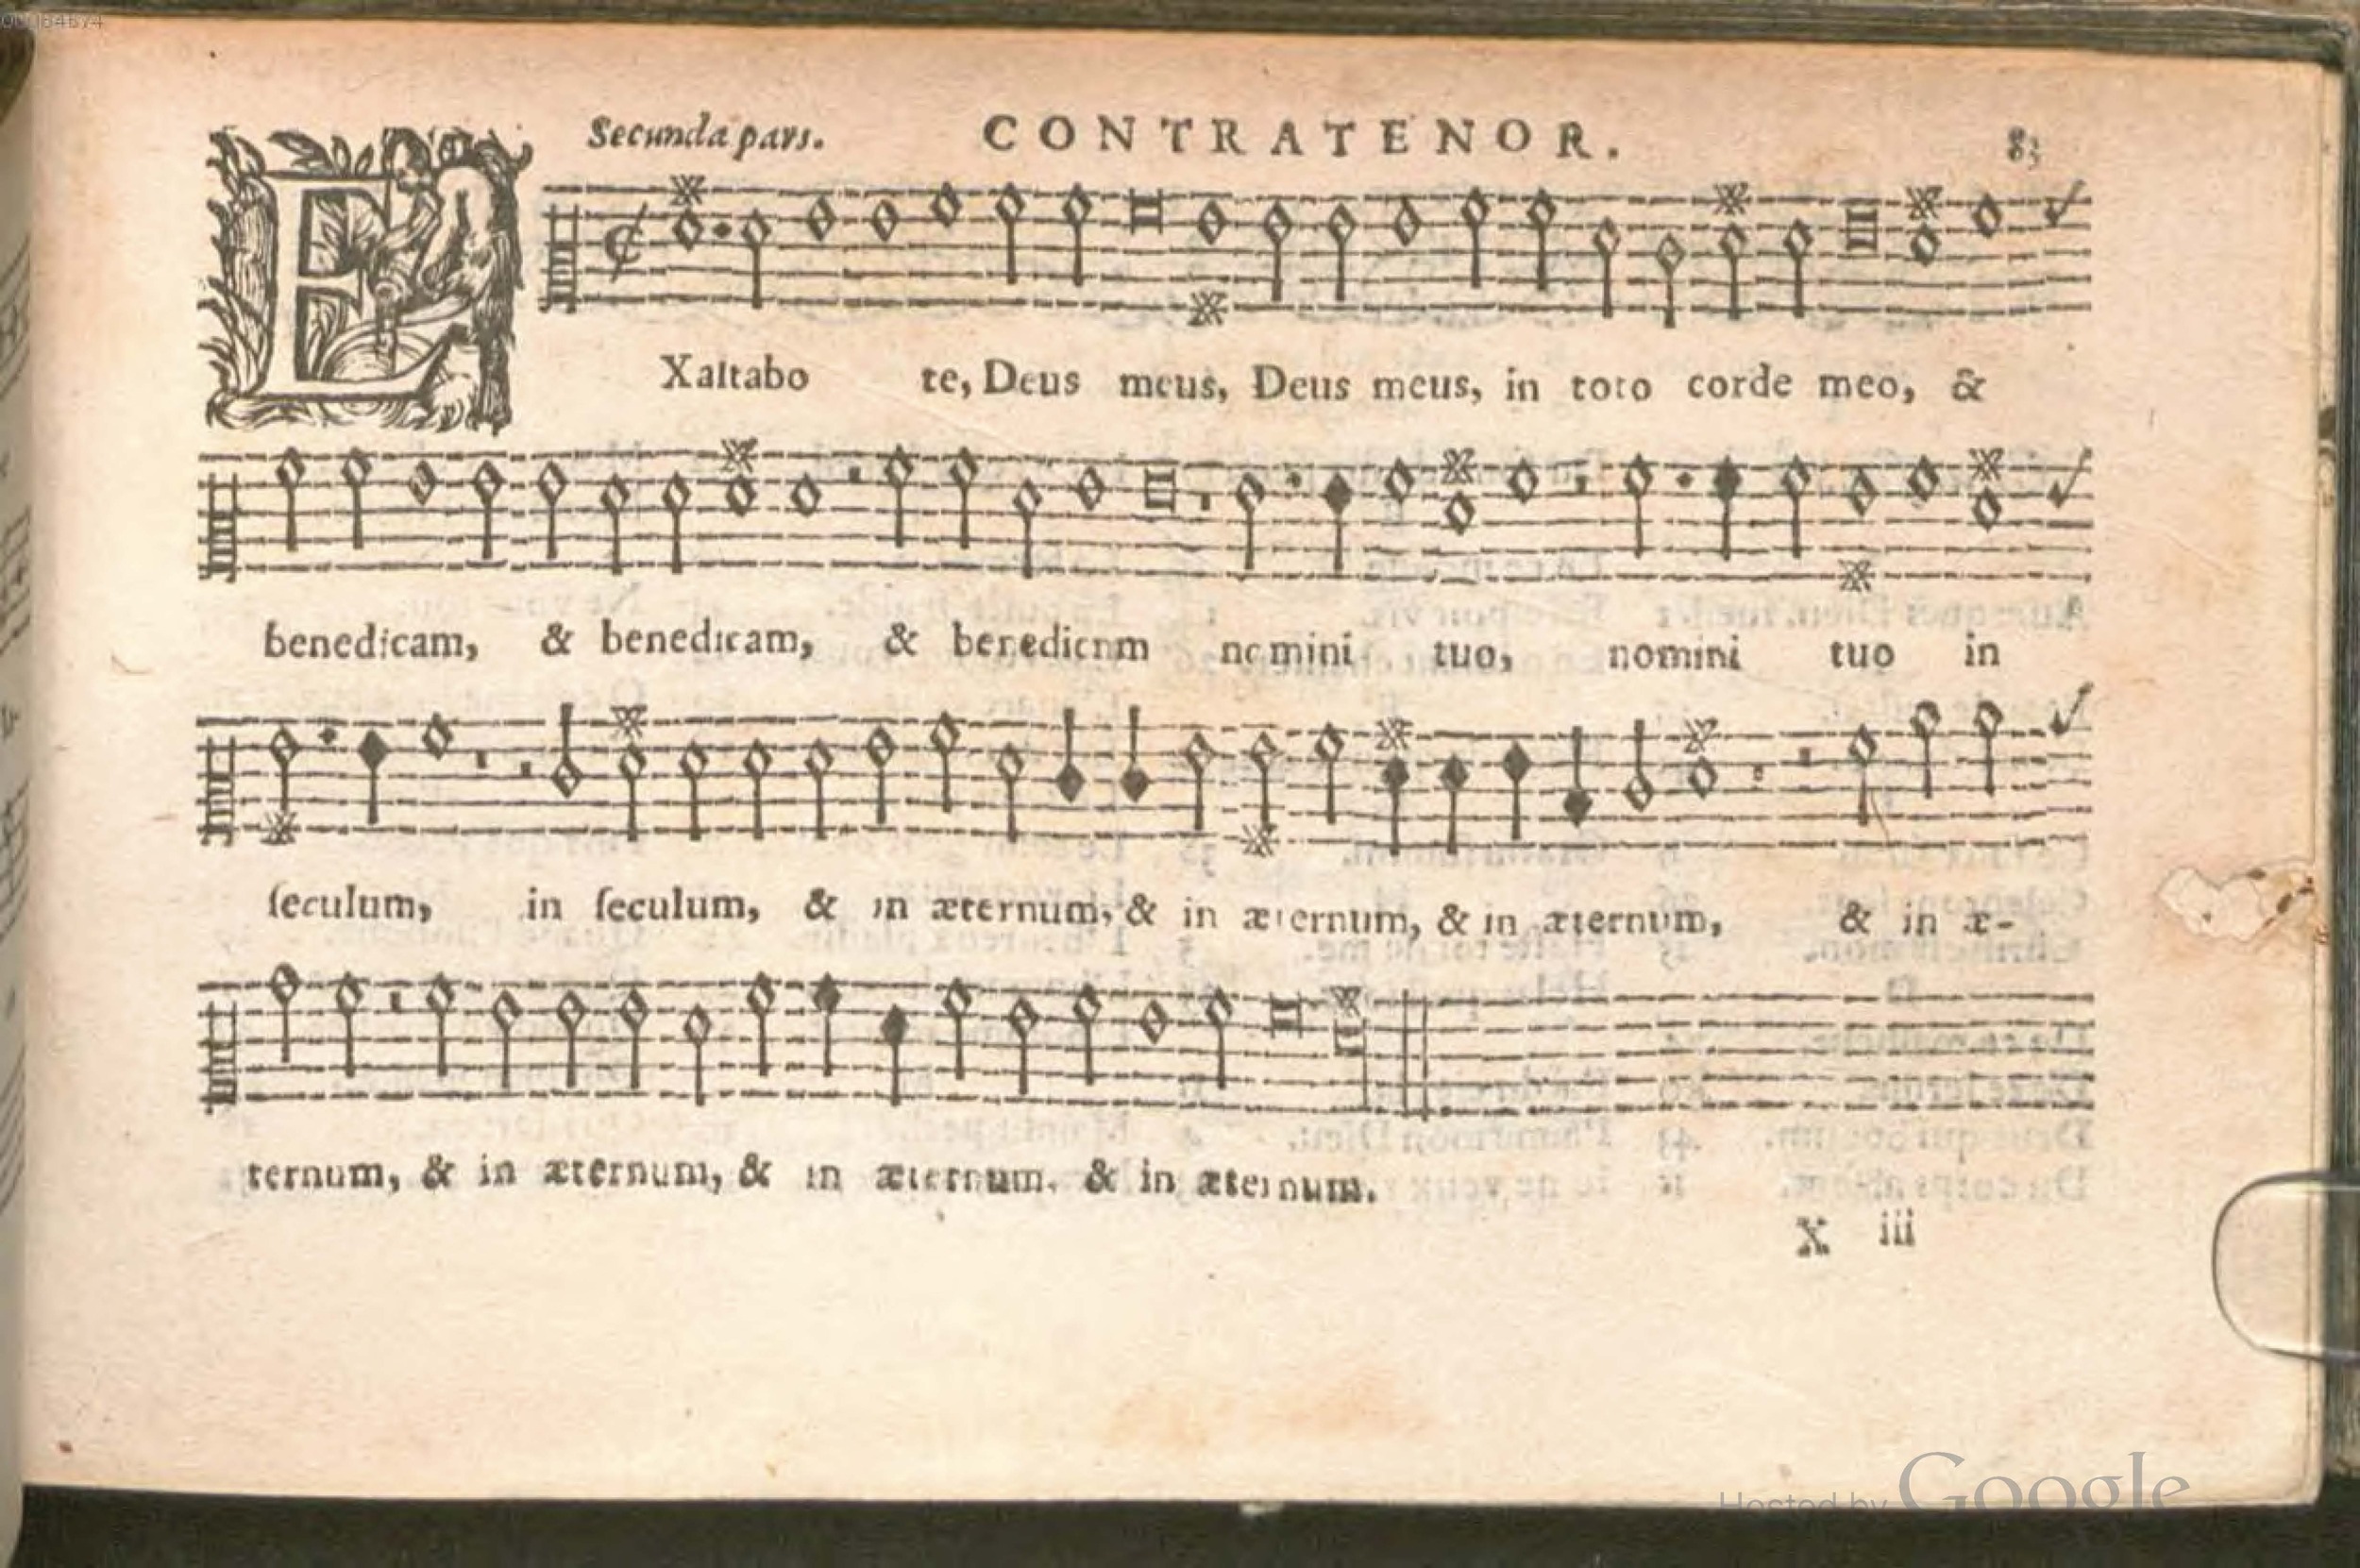 Secunda pars. CONTRATENOR. 83
EXaltabo te, Deus meus, Deus meus, in toto corde meo, &
benedicam, & benedicam, & benedicnm nomini tuo, nomini tuo in
ſeculum, in ſeculum, & in æternum, & in æternum, & in æternum, & in æ-
ternum, & in æternum, & in æternum. & in æternum.
X iii
Hosted by Google